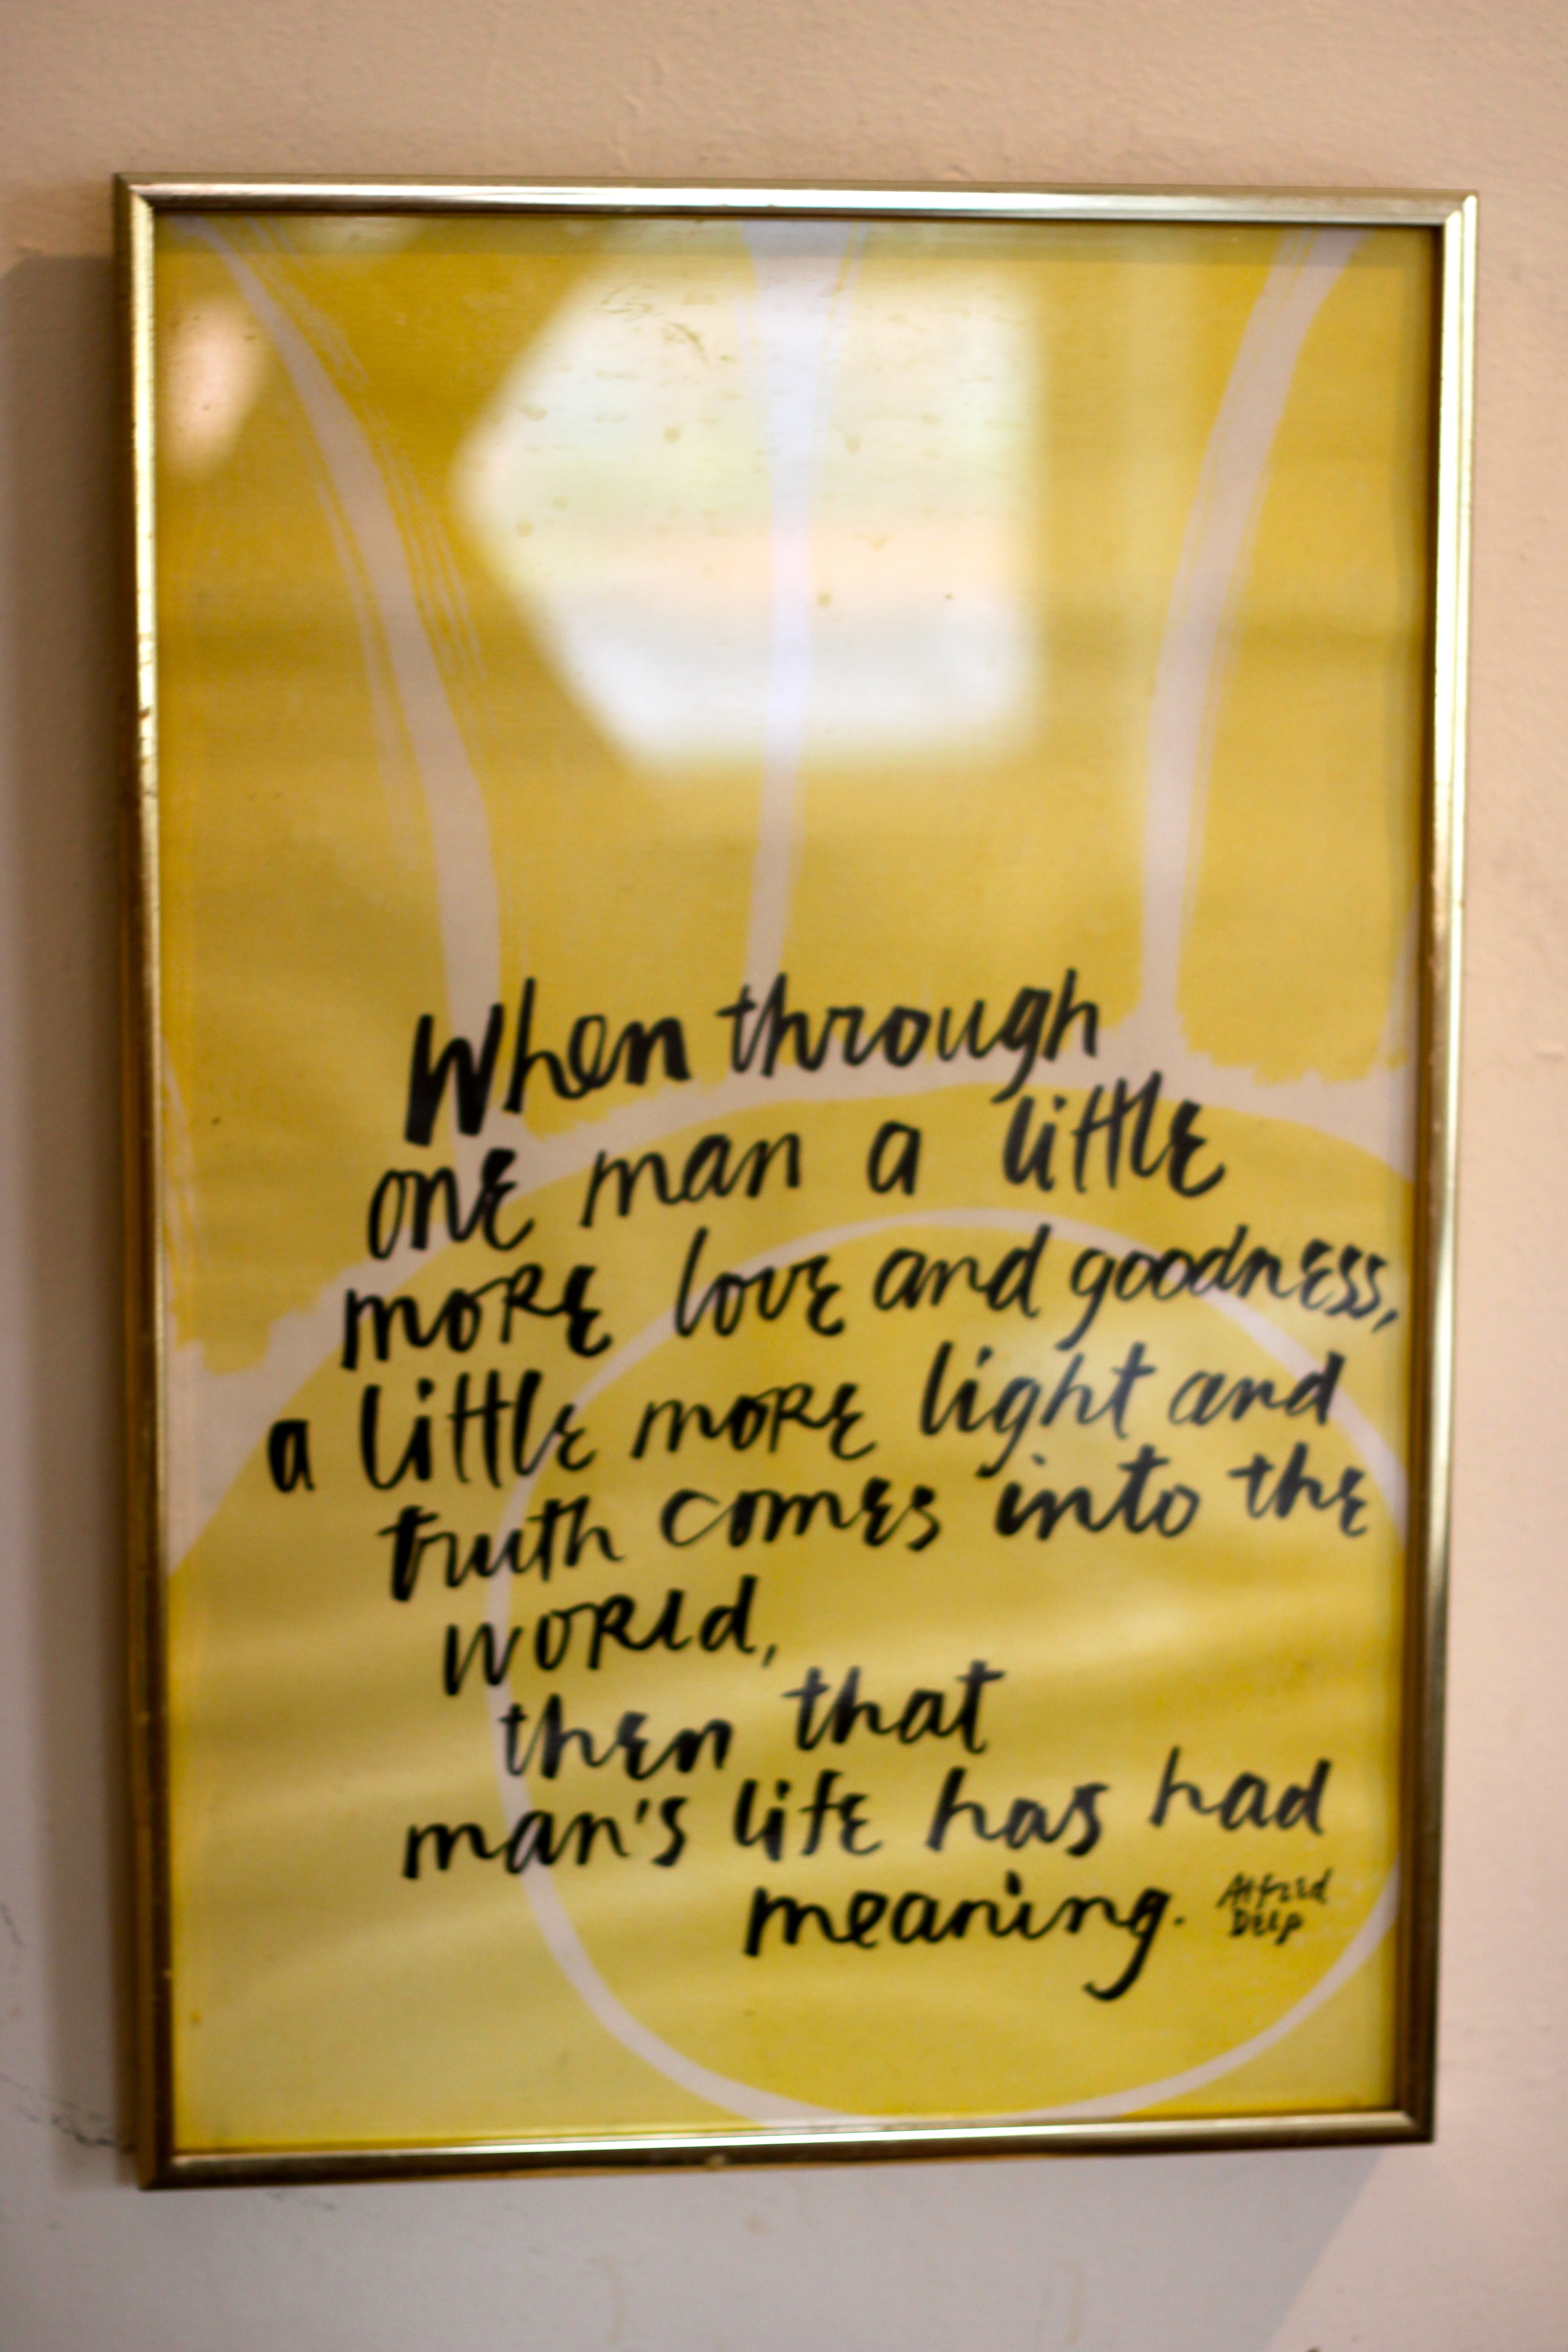 When through
one man a little
more love and goodness,
a little more light and
truth comes into the
world,
then that
man's life has had
meaning.
Alfred
Delp